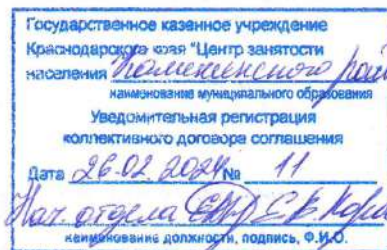 Государственное казенное учреждение
Краснодарского края "Центр занятости
населения
наименование муниципального образования
Уведомительная регистрация
коллективного договора соглашения
Дата 26.02.2024 № 11
Нач. отдела Е.В.
наименование должности, подпись, Ф.И.О.